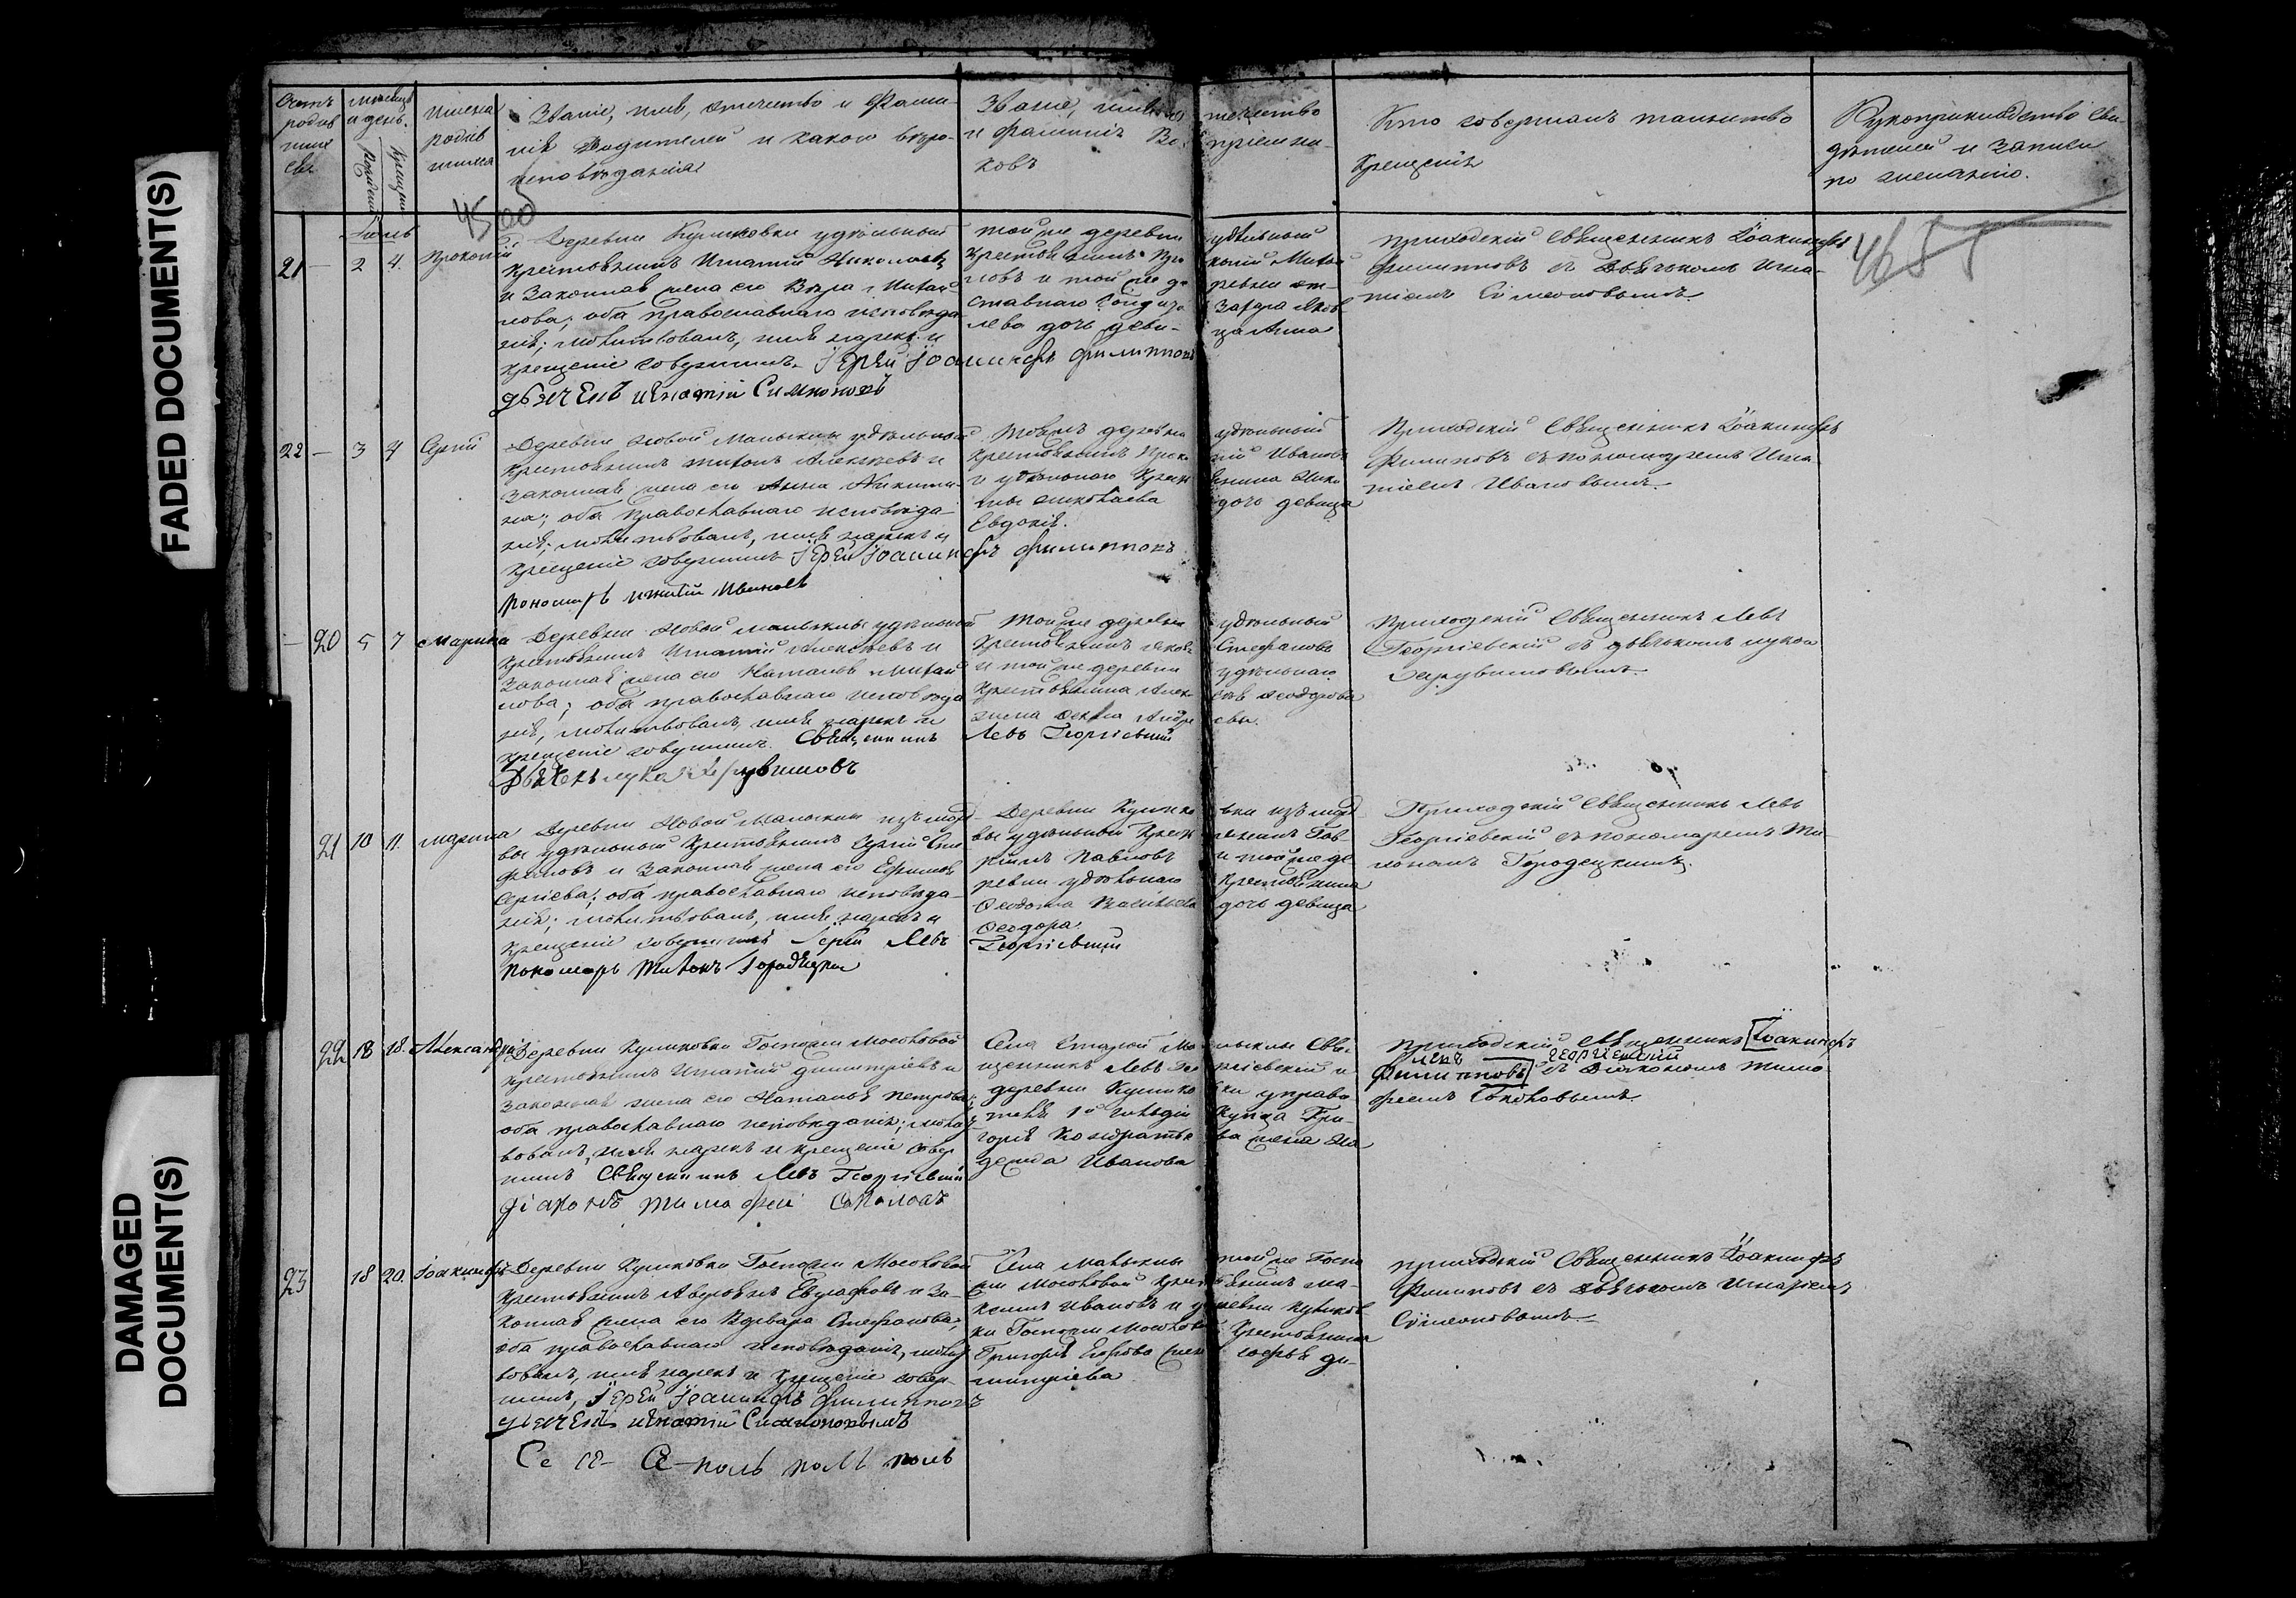 FADED DOCUMENT(S)
DAMAGED
DOCUMENT(S)
Счетъ
родив
ших
ся
месяцъ
и день.
рожденія
крещенія
Имена
родив
шихся
Званіе, имя, отчество и Фами-
лія родителей и какого вѣро-
исповѣданія
Званіе, имя отечество
и фамилія Воспріемни-
ковъ
Кто совершалъ таинство
Крещенія
Рукоприкладство сви-
дѣтелей и записи
по желанію.
4500
4655
Іюль
21 — 2 4. Прокопій
Деревни Куликовки удѣльный
крестьянинъ Игнатій Николаевъ
и законная жена его Вѣра Михай
лова; оба православнаго исповѣда
нія; молитвовалъ, имя нарекъ и
крещеніе совершилъ. Іерей Іоакинфъ Филипповъ
дьячекъ Игнатій Симионовъ
той же деревни удѣльный
крестьянинъ Про копій Михай
ловъ и той же деревни от-
ставнаго
лева дочь деви- ца Анна
Приходскій Священникъ Іоакинфъ
Филипповъ съ Дьячкомъ Игна-
тіемъ Сімеоновымъ
22 — 3 4 Сергій
Деревни Новой Малыклы удѣльный
крестьянинъ Тихонъ Алексѣевъ и
законная жена его Анна Никити-
на; оба православнаго исповѣда-
нія; молитвовалъ, имя нарекъ и
крещеніе совершилъ Іерей Іоакинфъ Филипповъ
пономарь Игнатій Ивановъ
деревни удѣльный
крестьянинъ Ивановъ
и удѣльнаго крестьянина Нико
лаева дочь девица
Евдокія.
Приходскій Священникъ Іоакинфъ
Филиповъ съ пономаремъ Игна-
тіемъ Ивановымъ.
— 20 5 7 Марина
Деревни Новой Малыклы удѣльный
крестьянинъ Игнатій Алексѣевъ и
законная жена его Наталья Михай
лова; оба православнаго исповѣда
нія, молитвовалъ, имя нарекъ и
крещеніе совершилъ. Священникъ Левъ Георгіевскій
Дьячекъ Лука Херувимовъ
Той же деревни удѣльный
крестьянинъ Яковъ Стефановъ
и той же деревни удѣльнаго
крестьянина Алексѣя Феодорова
жена Фекла Андреева.
Приходскій Священникъ Левъ
Георгіевскій съ дьячкомъ Лукою
Херувимовымъ.
21 10 11. Марина
Деревни Новой Малыклы изъ морд
вы удѣльный крестьянинъ Сергій Сте
фановъ и законная жена его Ефимія
Сергіева; оба православнаго исповѣда-
нія; молитвовалъ, имя нарекъ и
крещеніе совершилъ Іерей Левъ Георгіевскій
пономарь Тихонъ Городецкій
Деревни Кулико вки изъ морд
вы удѣльный крестьянинъ Гав
ріилъ Павловъ и той же де
ревни удѣльнаго крестьянина
Феодота Васильева дочь девица
Феодора
Приходскій Священникъ Левъ
Георгіевскій съ пономаремъ Ти-
хономъ Городецкимъ.
22 18 18. Александра
Деревни Куликовки Госпожи Мосоловой
крестьянинъ Игнатій Димитріевъ и
законная жена его Наталья Петрова;
оба православнаго исповѣданія; молит
вовалъ, имя нарекъ и крещеніе совер
шилъ Священникъ Левъ Георгіевскій
Діаконъ Тимофей Соколовъ
Села Старой Малыклы Свя-
щенникъ Левъ Георгіевскій и
деревни Куликовки управи
теля 1й гильдіи купца Гри-
горія Кондратье ва жена На
дежда Иванова
Приходскій Священникъ [Іоакинфъ
Левъ Георгіевскій
Филипповъ] съ Діакономъ Тимо
феемъ Соколовымъ.
23 18 20. Іоакинфъ
Деревни Куликовки Госпожи Мосоловой
крестьянинъ Аверьянъ Евграфовъ и за-
конная жена его Варвара Стефанова;
оба православнаго исповѣданія, молит
вовалъ, имя нарекъ и крещеніе совер-
шилъ, Іерей Іоакинфъ Филипповъ
дьячекъ Игнатій Симионовымъ
Села Малыклы той же Госпо
жи Мосоловой крестьянинъ Ма-
ксимъ Ивановъ и деревни Куликов
ки Госпожи Мосоловой крестьянина
Григорія Егорова жена Софья Ди-
митріева
Приходскій Священникъ Іоакинфъ
Филиповъ съ Дьячкомъ Игнатіемъ
Сімеоновымъ
Се се- Се-поль поль поль